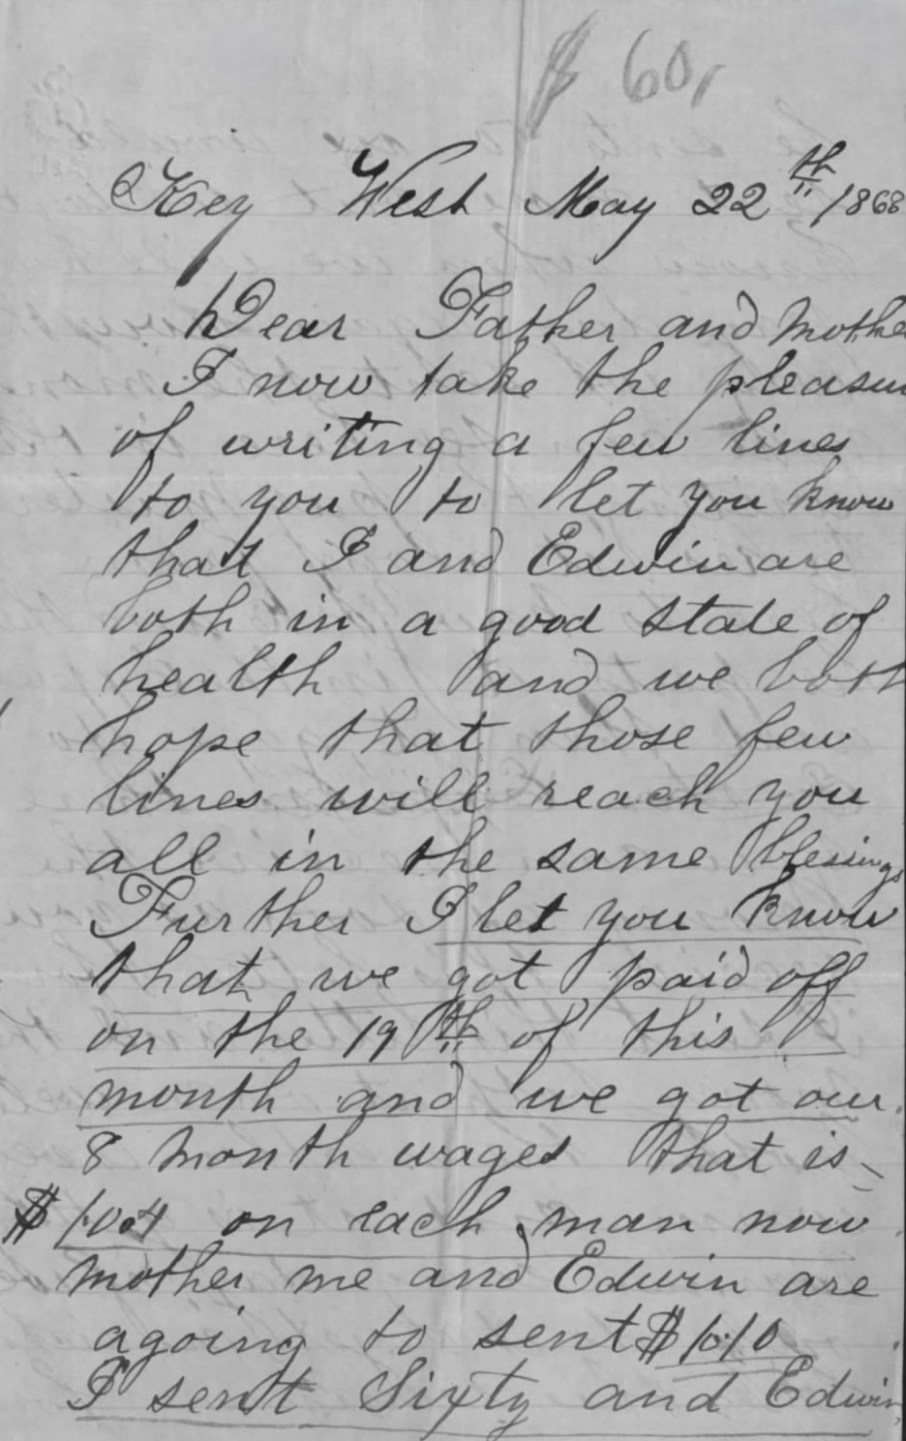 $ 60,
Key West May 22th 1868
Dear Father and Mothe
I now take the pleasu
of writing a few lines
to you to let you know
that I and Edwin are
both in a good state of
health and we both
hope that those few
lines will reach you
all in the same blesings
Further I let you know
that we got paid off
on the 19th of this
month and we got our
8 month wages that is
$ 104 on each man now
mother me and Edwin are
agoing to sent $ 110
I sent Sixty and Edwin